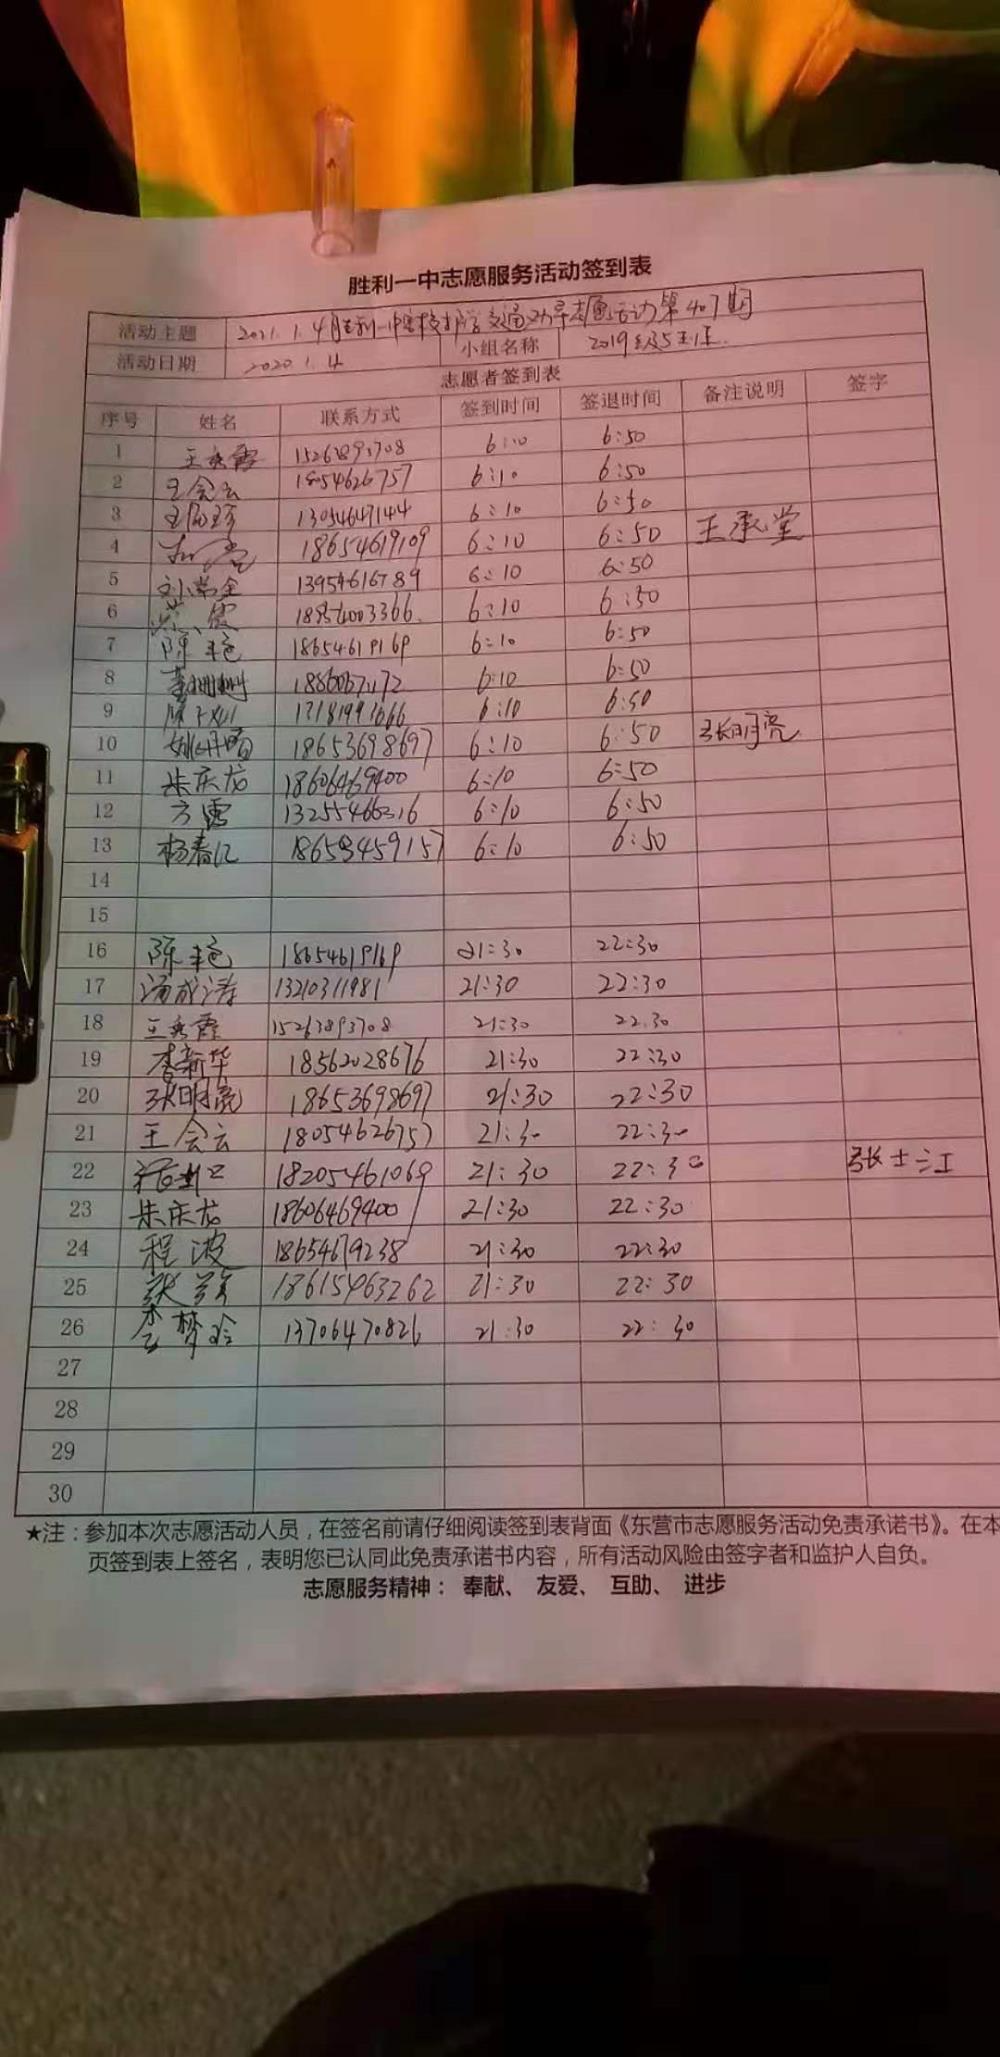 胜利一中志愿服务活动签到表
活动主题 2021.1.4月胜利一中 交通劝导志愿活动第407期
活动日期 2020.1.4 小组名称 2019级5
志愿者签到表
序号 姓名 联系方式 签到时间 签退时间 备注说明 签字
1 王秀霞 15263893708 6:10 6:50
2 王会云 18054626757 6:10 6:50
3 13054647144 6:10 6:50
4 18654619109 6:10 6:50 王承堂
5 刘常金 13954616789 6:10 6:50
6 霞 6:10 6:50
7 陈艳 18654619169 6:10 6:50
8 6:10 6:50
9 6:10 6:50
10 18653698697 6:10 6:50 张明亮
11 朱庆龙 18606469400 6:10 6:50
12 方雷 13255466316 6:10 6:50
13 杨春 18653459157 6:10 6:50
14
15
16 陈艳 18654619169 21:30 22:30
17 汤成涛 13210311981 21:30 22:30
18 王秀霞 15263893708 21:30 22:30
19 李新华 18562028676 21:30 22:30
20 张明亮 18653698697 21:30 22:30
21 王会云 18054626757 21:30 22:30
22 18205461069 21:30 22:30 张士江
23 朱庆龙 18606469400 21:30 22:30
24 程波 18654679238 21:30 22:30
25 18615463262 21:30 22:30
26 李梦玲 13706470826 21:30 22:30
27
28
29
30
★注：参加本次志愿活动人员，在签名前请仔细阅读签到表背面《东营市志愿服务活动免责承诺书》。在本
页签到表上签名，表明您已认同此免责承诺书内容，所有活动风险由签字者和监护人自负。
志愿服务精神： 奉献、 友爱、 互助、 进步